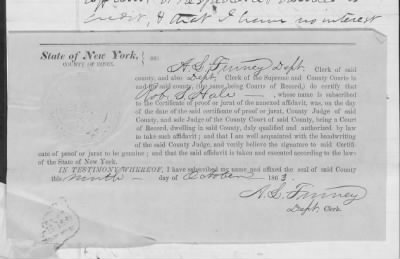 credit, & that I have no interest
State of New York,
COUNTY OF ESSEX, } ss:
A. S. Finney Dept. Clerk of said
county, and also Dept. Clerk of the Supreme and County Courts in
and for said county, (the same being Courts of Record,) do certify that
Rob. S. Hale, whose name is subscribed
to the Certificate of proof or jurat of the annexed affidavit, was, on the day
of the date of said certificate of proof or jurat, County Judge of said
County, and sole Judge of the County Court of said County, being a Court
of Record, dwelling in said County, duly qualified and authorized by law
to take such affidavit; and that I am well acquainted with the handwriting
of the said County Judge, and verily believe the signature to said Certifi-
cate of proof or jurat to be genuine; and that the said affidavit is taken and executed according to the laws
of the State of New York.
IN TESTIMONY WHEREOF, I have subscribed my name and affixed the seal of said County
this ninth day of October 1863.
A. S. Finney
Dept. Clerk.